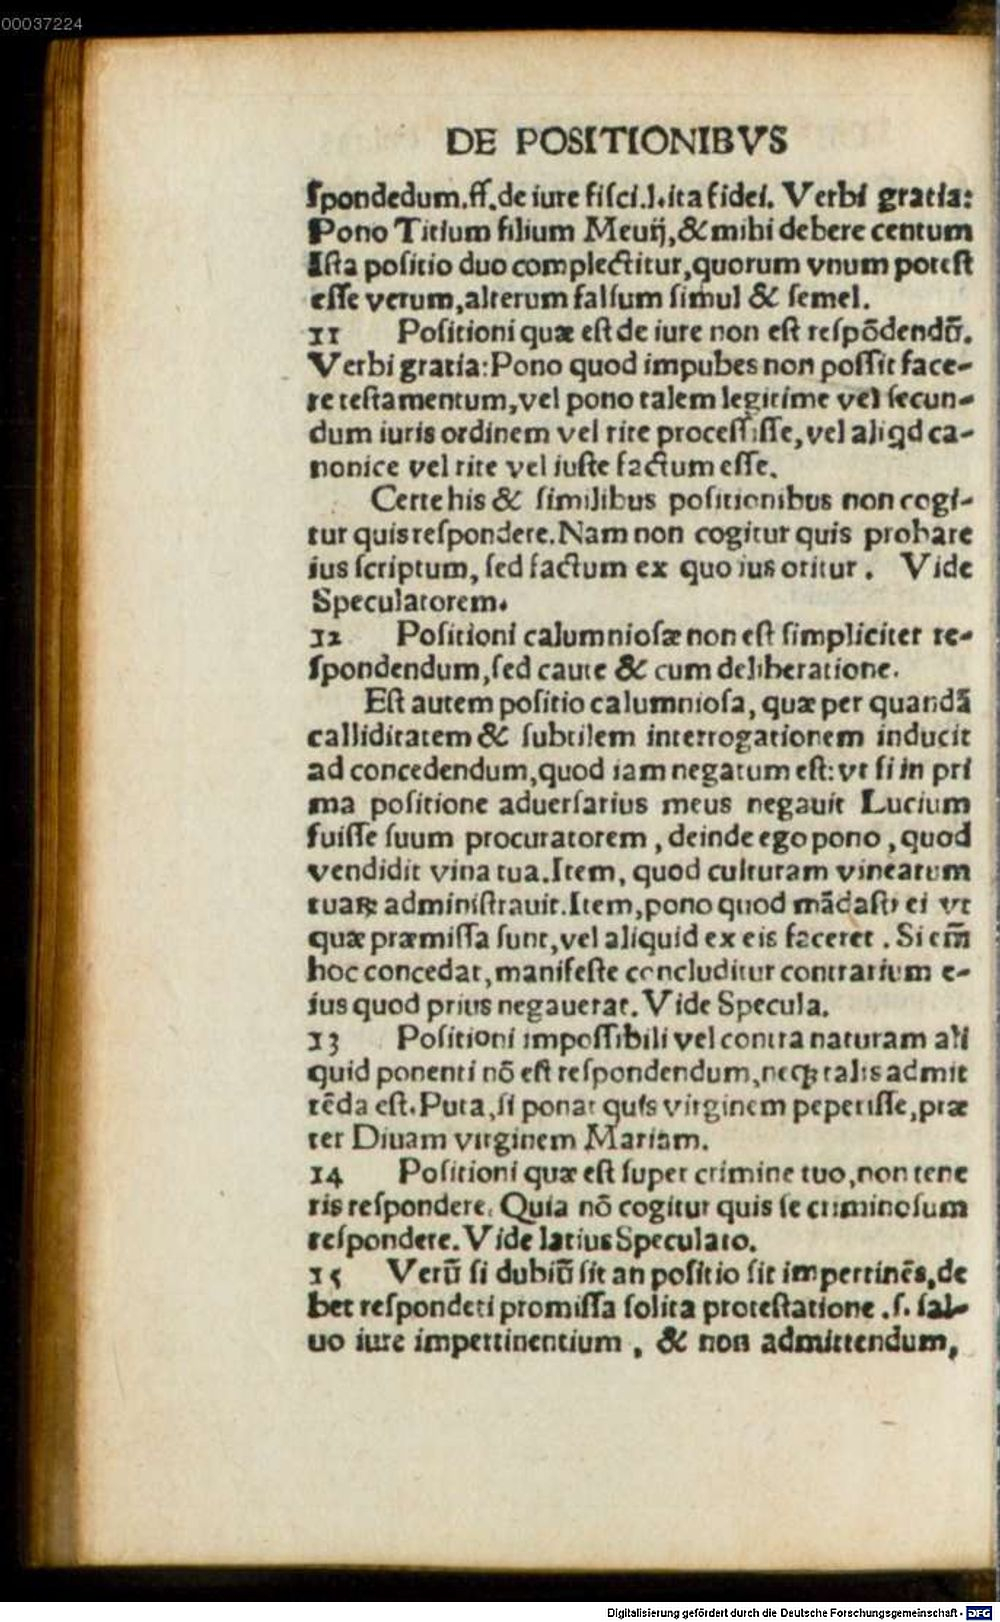 00037224
DE POSITIONIBVS
ſpondedum.ff.de iure fiſci.l.ita fidei. Verbi gratia:
Pono Titium filium Meuij,& mihi debere centum
Iſta poſitio duo complectitur,quorum vnum poteſt
eſſe verum,alterum falſum ſimul & ſemel.
11 Poſitioni quæ eſt de iure non eſt reſpõdendũ.
Verbi gratia:Pono quod impubes non poſſit face-
re teſtamentum,vel pono talem legitime vel ſecun-
dum iuris ordinem vel rite proceſſiſſe,vel aliqd ca-
nonice vel rite vel iuſte factum eſſe.
Certe his & ſimilibus poſitionibus non cogi-
tur quis reſpondere.Nam non cogitur quis probare
ius ſcriptum, ſed factum ex quo ius oritur. Vide
Speculatorem.
12 Poſitioni calumnioſæ non eſt ſimpliciter re-
ſpondendum,ſed caute & cum deliberatione.
Eſt autem poſitio calumnioſa, quæ per quandã
calliditatem & ſubtilem interrogationem inducit
ad concedendum,quod iam negatum eſt:vt ſi in pri
ma poſitione aduerſarius meus negauit Lucium
fuiſſe ſuum procuratorem, deinde ego pono, quod
vendidit vina tua.Item, quod culturam vinearum
tuaꝝ adminiſtrauit.Item,pono quod mãdaſti ei vt
quæ præmiſſa ſunt,vel aliquid ex eis faceret. Si em̃
hoc concedat,manifeſte concluditur contrarium e-
ius quod prius negauerat. Vide Specula.
13 Poſitioni impoſſibili vel contra naturam ali
quid ponenti nõ eſt reſpondendum,neqꝫ talis admit
tẽda eſt.Puta,ſi ponat quis virginem peperiſſe,præ
ter Diuam virginem Mariam.
14 Poſitioni quæ eſt ſuper crimine tuo,non tene
ris reſpondere. Quia nõ cogitur quis ſe criminoſum
reſpondere. Vide latius Speculato.
15 Verũ ſi dubiũ ſit an poſitio ſit impertinẽs,de
bet reſponderi promiſſa ſolita proteſtatione .ſ. ſal-
uo iure impertinentium, & non admittendum,
Digitalisierung gefördert durch die Deutsche Forschungsgemeinschaft - DFG